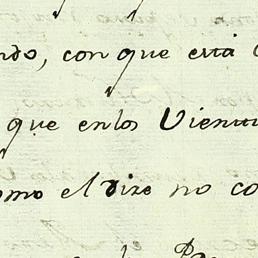 ndo, con que està
que enlos Vientu
omo el dize no co